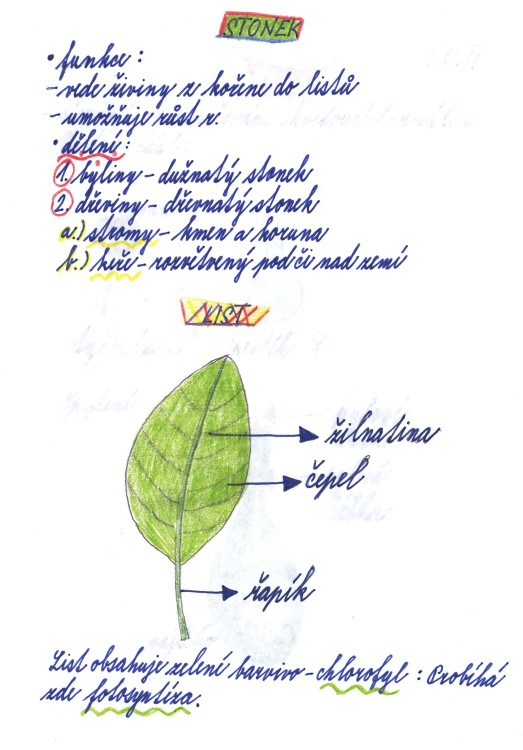 STONEK
• funkce:
- vede živiny z kořene do listů
- umožňuje růst r.
• dělení:
1. byliny - dužnatý stonek
2. dřeviny - dřevnatý stonek
a.) stromy - kmen a koruna
b.) keře - rozvětvený pod či nad zemí
LIST
žilnatina
čepel
řapík
List obsahuje zelení barvivo - chlorofyl : Probíhá
zde fotosyntíza.